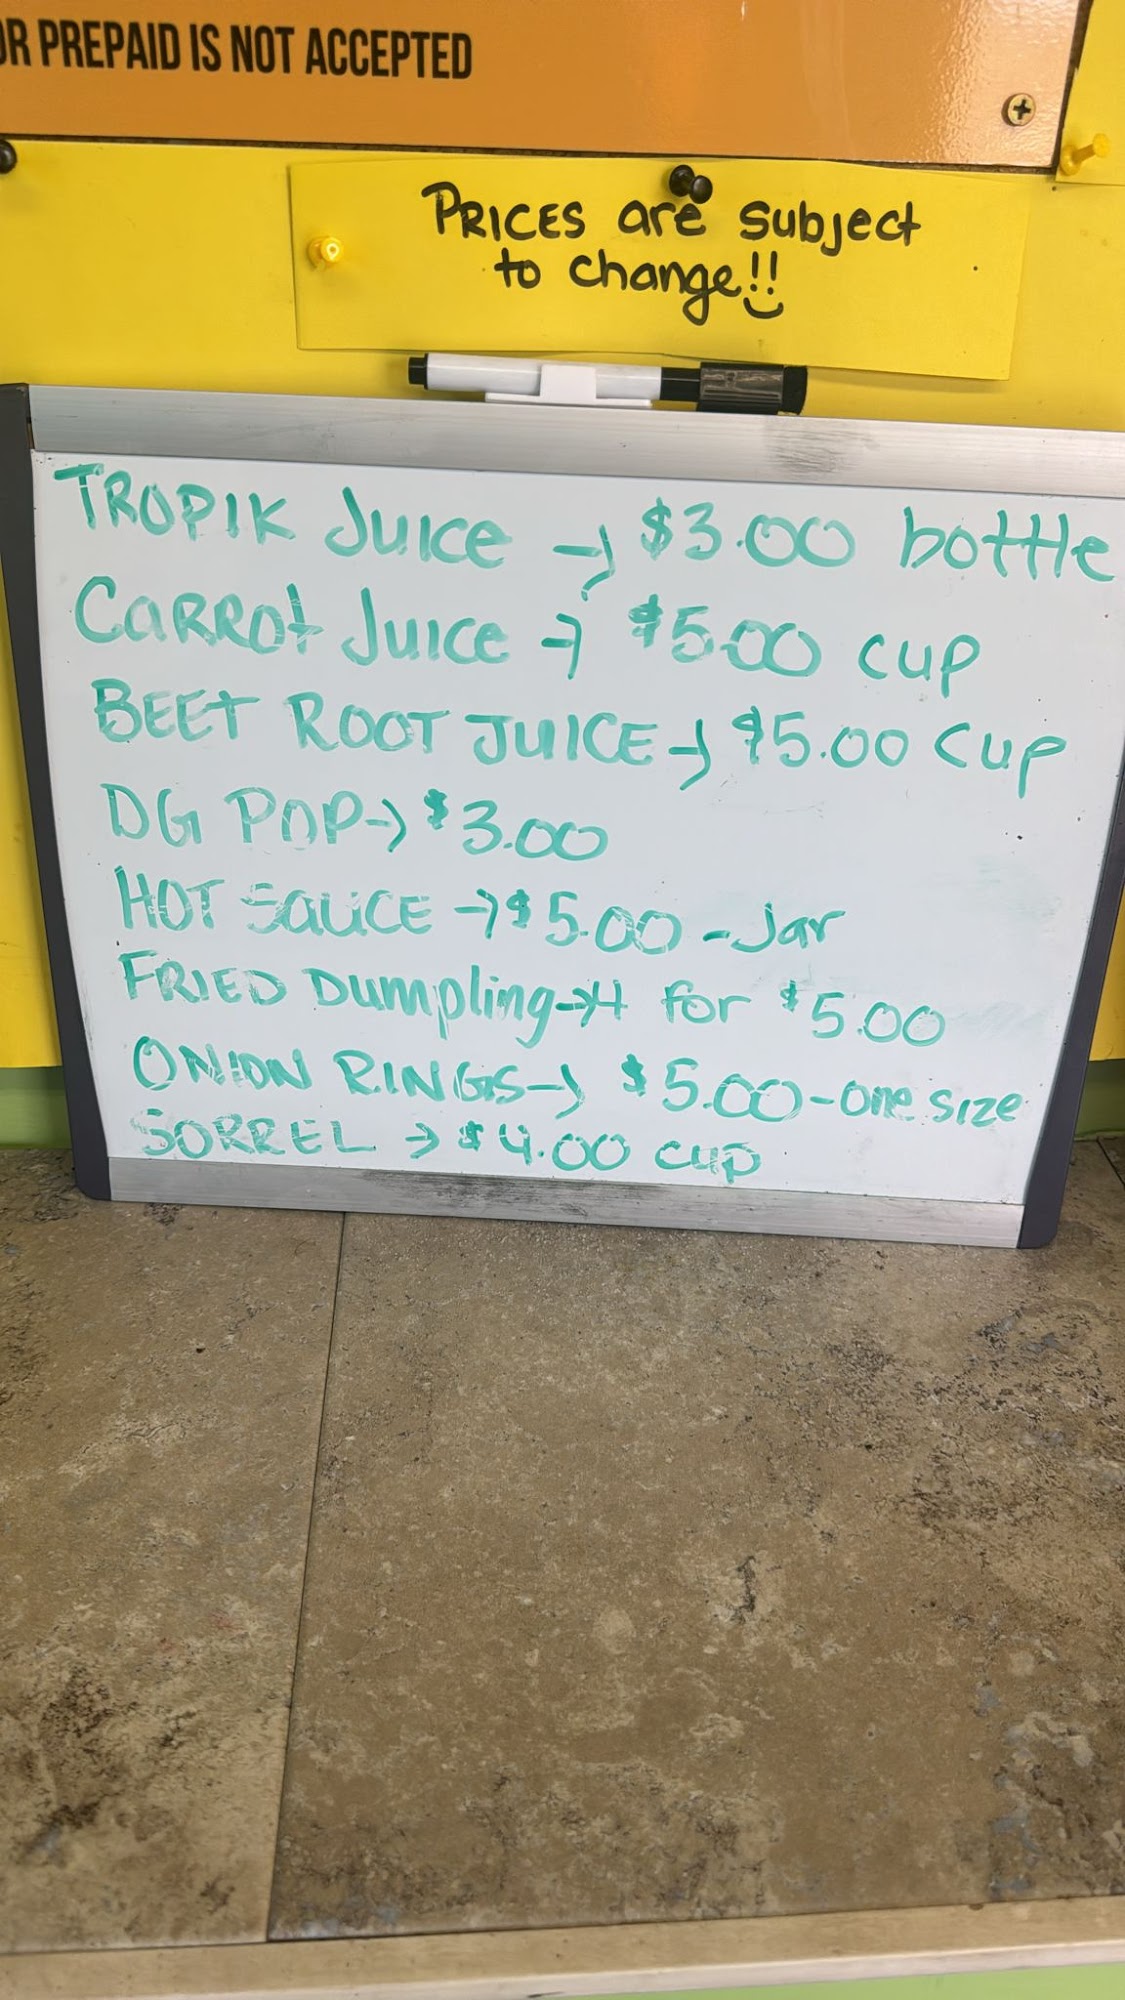 OR PREPAID IS NOT ACCEPTED
PRICES are subject
to change!!
TROPIK Juice → $3.00 bottle
CARROt Juice → $5.00 cup
BEEt ROOT JUICE → $5.00 cup
DG POP → $3.00
HOT SAUCE → $5.00 - Jar
FRIED Dumpling → 4 for $5.00
ONION RINGS → $5.00 - one size
SORREL → $4.00 cup